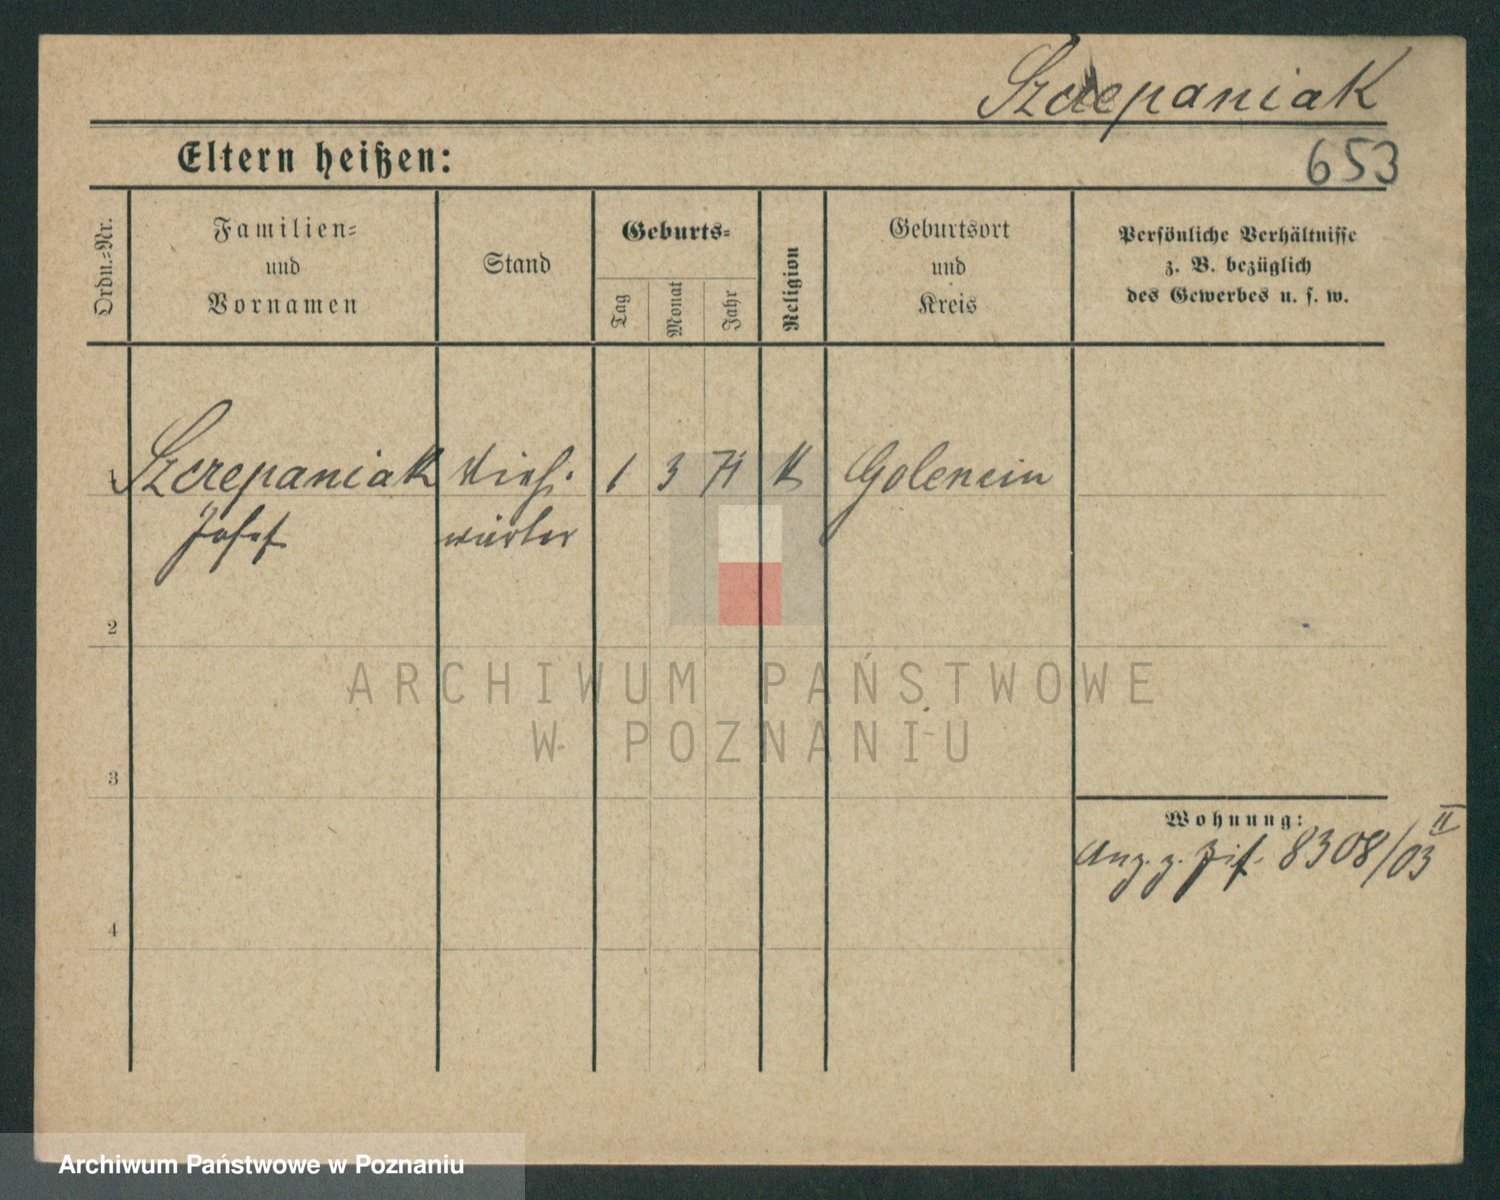 Szczepaniak
653
Eltern heißen:
Ordn.-Nr.
Familien-
und
Vornamen
Stand
Geburts-
Tag
Monat
Jahr
Religion
Geburtsort
und
Kreis
Persönliche Verhältnisse
z. B. bezüglich
des Gewerbes u. s. w.
1 Szczepaniak Vieh- 1 3 71 K Golencin
Josef wärter
2
3
4
Wohnung:
Ang. z. Ziff. 8308/03 II
ARCHIWUM PAŃSTWOWE
W POZNANIU
Archiwum Państwowe w Poznaniu